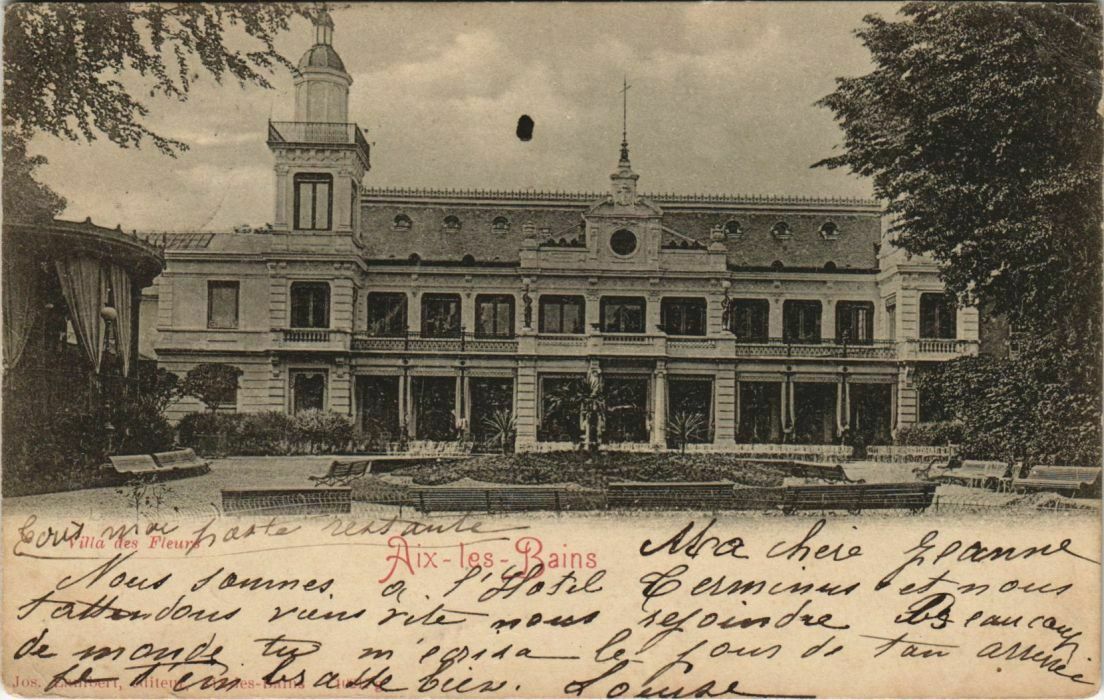 Ecris moi poste restante
Villa des Fleurs
Aix-les-Bains
Ma chère Jeanne
Nous sommes a l'Hotel Terminus et nous
t'attendons viens vite nous rejoindre Beaucoup
de monde tu m'écrira le jour de ton arrivée
Je t'embrasse bien. Louise
Jos. Lambert, éditeur, Aix-les-Bains